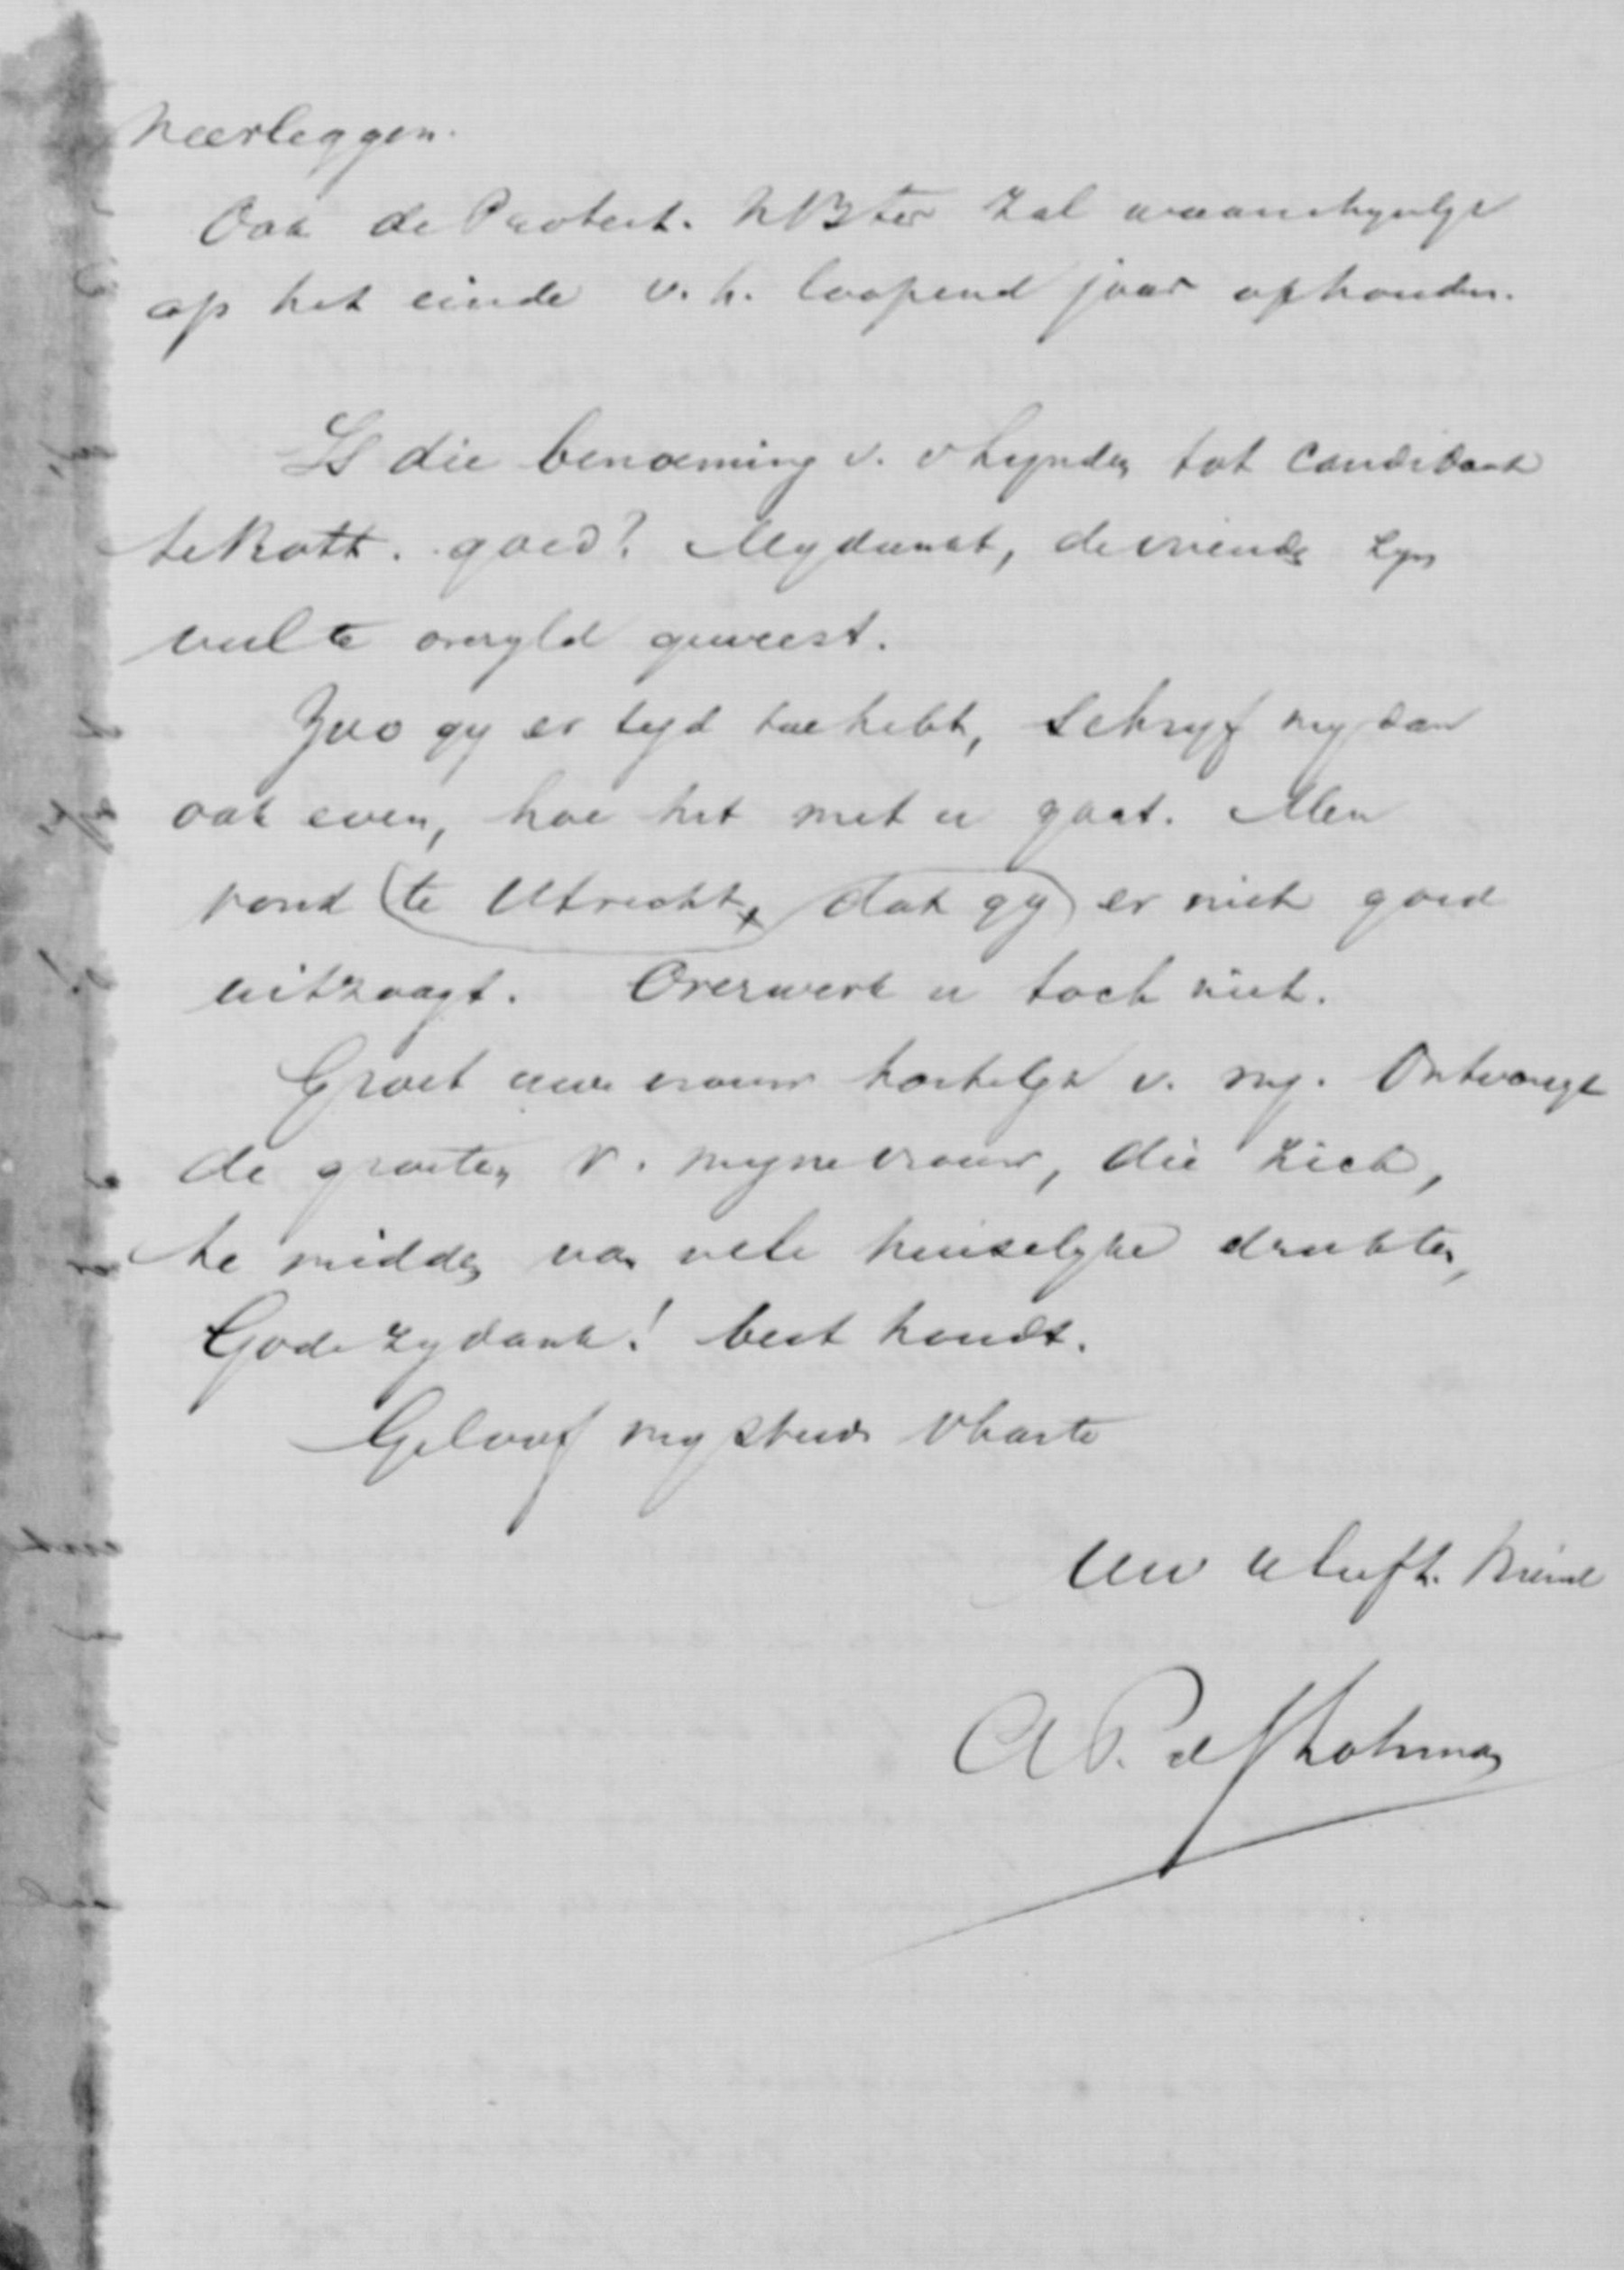 neerleggen.
Ook de Protest. NBter zal waarschynlyk
op het einde v. h. loopend jaar ophouden.
Is die benoeming v. v Lynden tot candidaat
te Rott. goed? My dunkt, de vriends zyn
veel te overyld geweest.
Zoo gy er tyd toe hebt, schryf my dan
ook even, hoe het met u gaat. Men
vond (te Utrecht, dat gy) er niet goed
uitzaagt. Overwerk u toch niet.
Groet uwe vrouw hartelyk v. my. Ontvangt
de groeten v. myne vrouw, die zich,
te midden van vele huiselyke drukten,
Gode zy dank! best houdt.
Geloof my steeds vharte
Uw liefh. Vriend
A P. d S Lohman